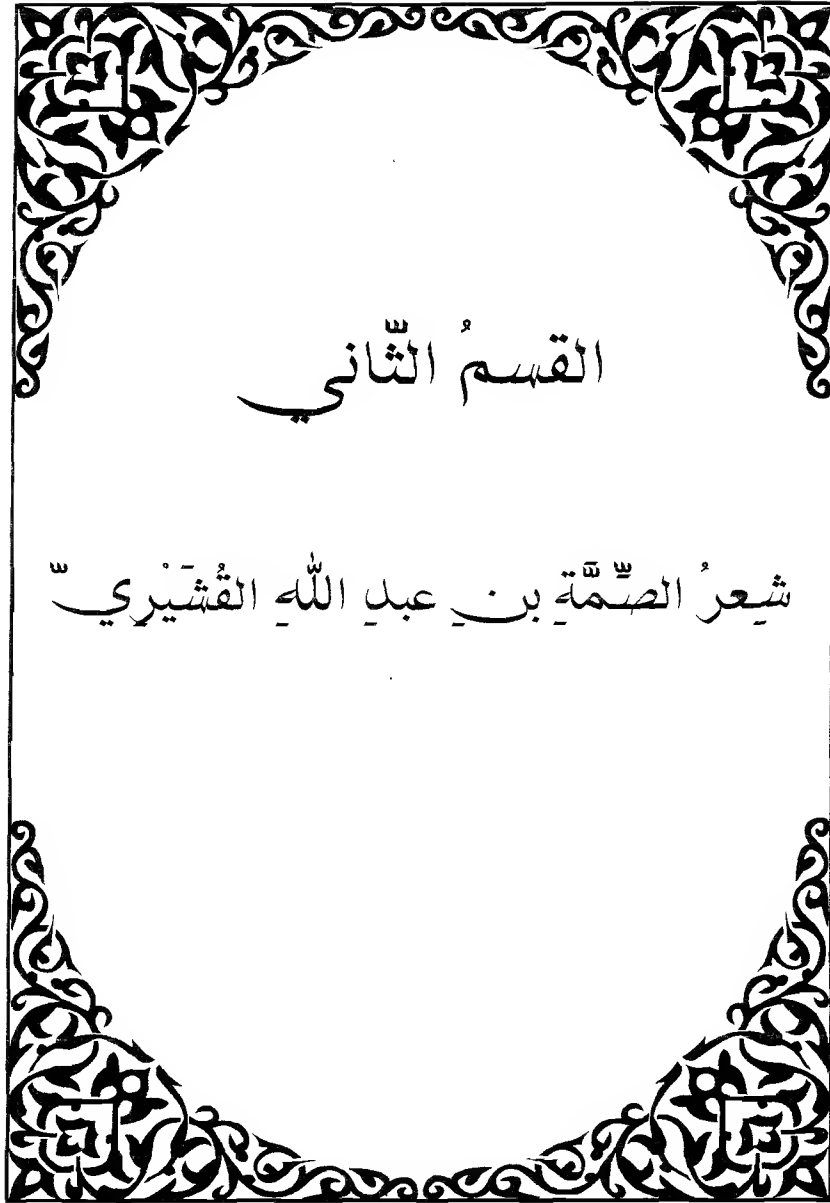 القسمُ الثّاني
شِعرُ الصِّمَّةِ بنِ عبدِ اللهِ القُشَيْرِيّ